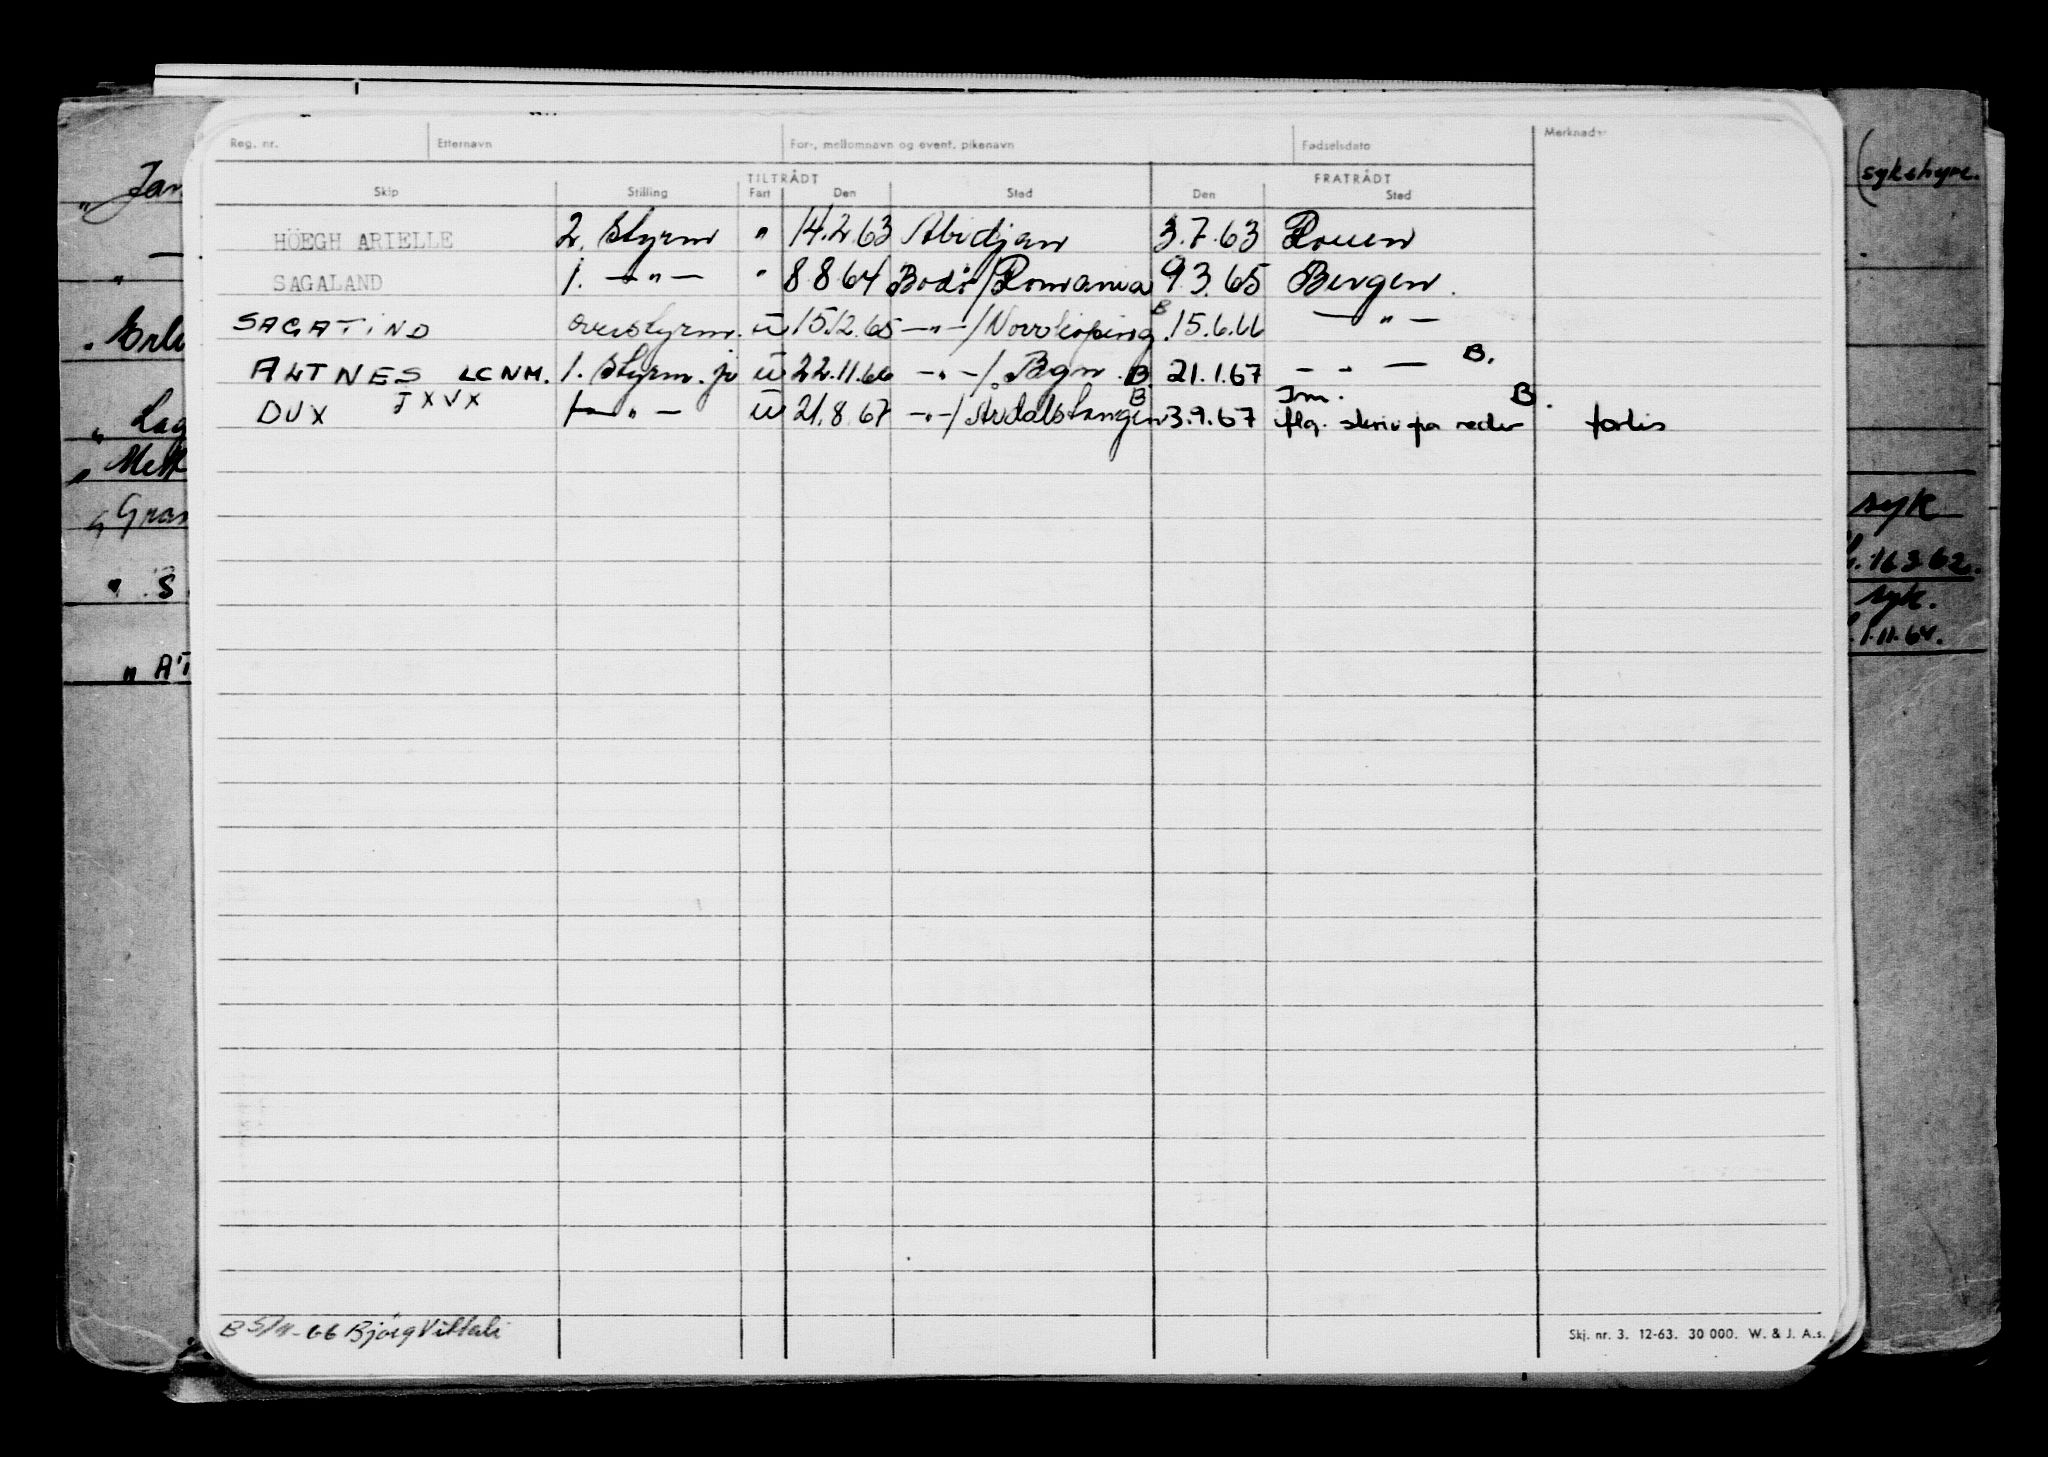 Reg. nr. Etternavn For-, mellomnavn og event. pikenavn Fødselsdato Merknader
TILTRÅDT FRATRÅDT
Skip Stilling Fart Den Sted Den Sted
HÖEGH ARIELLE 2. Styrm " 14.2.63 Abidjan 3.7.63 Rouen
SAGALAND 1. —"— " 8.8.64 Bodø/Romania 9.3.65 Bergen.
SAGATIND overstyrm. u 15.12.65 —"—/Norrköping B. 15.6.66 —"—
ALTNES LCNM. 1. Styrm. jr u 22.11.66 —"—/Bgn. B. 21.1.67 —"— B.
DUX JXVX 1—"— u 21.8.67 —"—/Årdalstangen B 3.9.67 Jm. B.
iflg. skriv fra reder forlis
B 5/11-66 Bjørg Vittali
Skj. nr. 3. 12-63. 30 000. W. & J. A.s.
(sykehyre.
"
syk
16.3.62.
syk.
1.11.64.